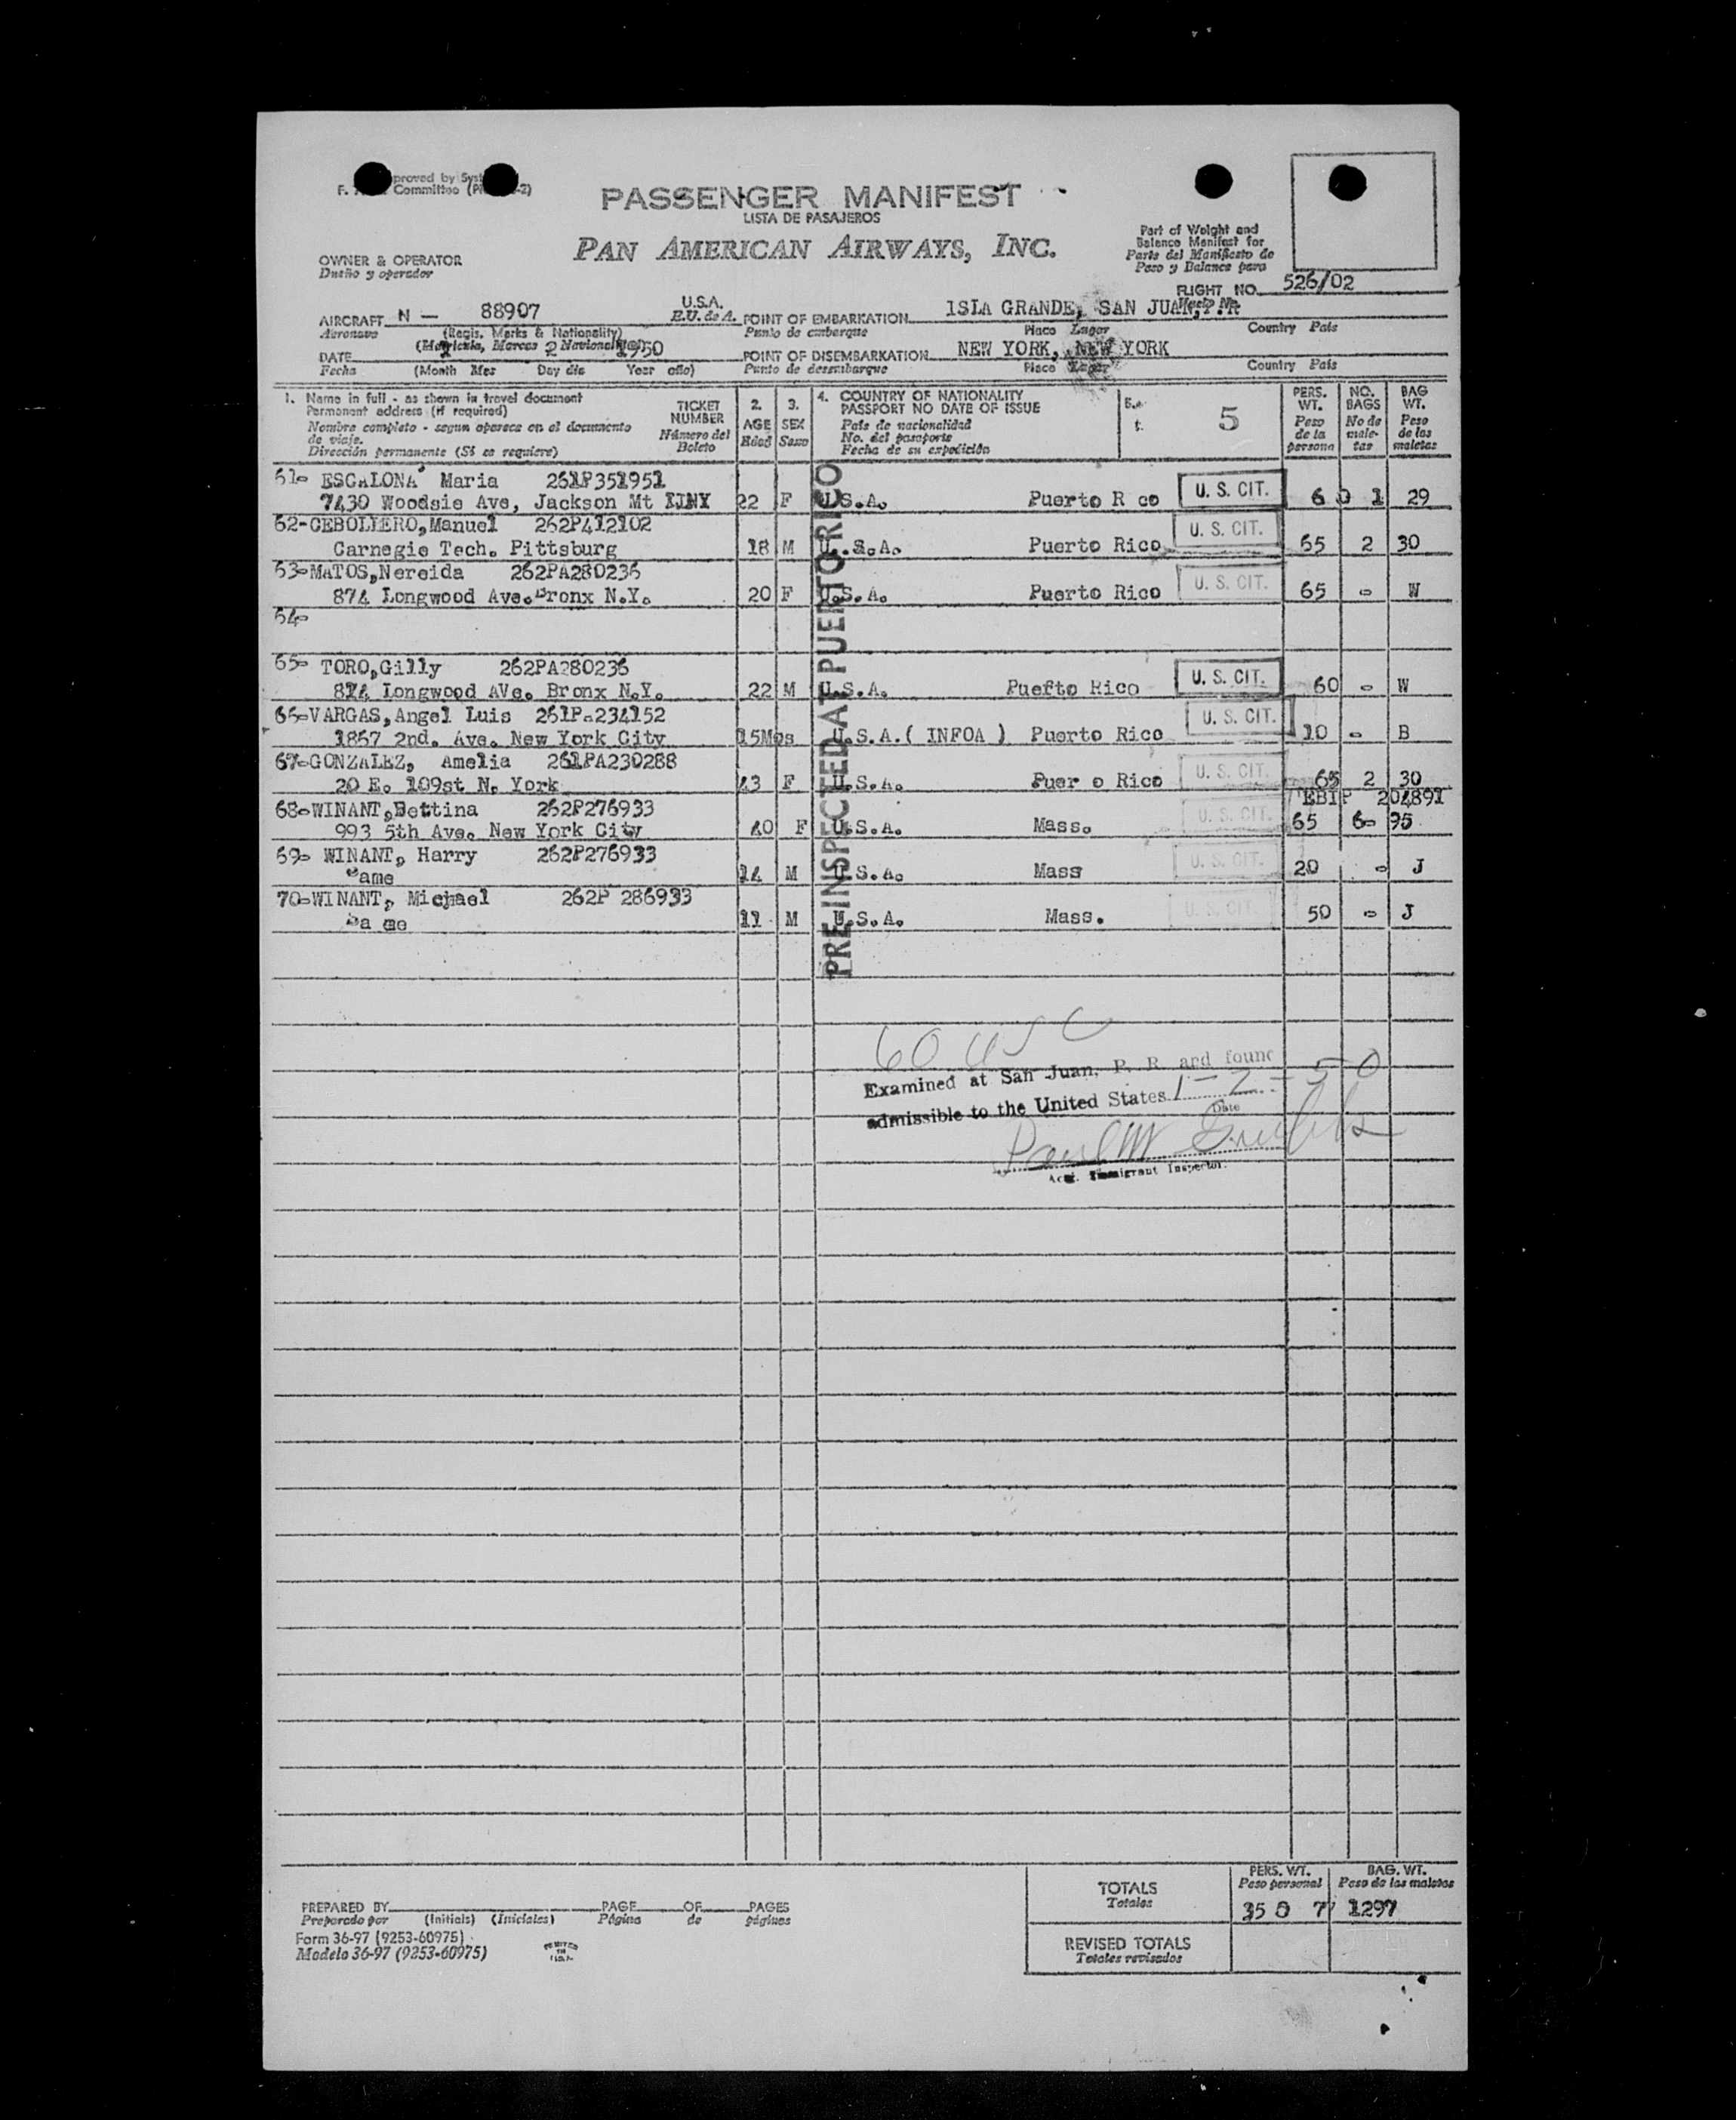 F. proved by Syst
Committee (P -2)
PASSENGER MANIFEST
LISTA DE PASAJEROS
PAN AMERICAN AIRWAYS, INC.
Part of Weight and
Balance Manifest for
Parte del Manifiesto de
Peso y Balance para
OWNER & OPERATOR
Dueño y operador
FLIGHT NO. 526/02
AIRCRAFT N — 88907 U.S.A. POINT OF EMBARKATION ISLA GRANDE, SAN JUAN, P.R.
Aeronave (Regis. Marks & Nationality) E.U. de A. Punto de embarque Place Lugar Country País
(Matrícula, Marcas y Nacionalidad)
DATE 1 2 1950 POINT OF DISEMBARKATION NEW YORK, NEW YORK
Fecha (Month Mes Day día Year año) Punto de desembarque Place Lugar Country País
1. Name in full - as shown in travel document
Permanent address (if required)
Nombre completo - segun aparece en el documento
de viaje.
Dirección permanente (Si se requiere)
TICKET
NUMBER
Número del
Boleto
2.
AGE
Edad
3.
SEX
Sexo
4. COUNTRY OF NATIONALITY
PASSPORT NO DATE OF ISSUE
País de nacionalidad
No. del pasaporte
Fecha de su expedición
5
PERS.
WT.
Peso
de la
persona
NO.
BAGS
No de
male-
tas
BAG
WT.
Peso
de las
maletas
61- ESCALONA Maria 261P351951
7430 Woodsie Ave, Jackson Mt 22 F U.S.A. Puerto R co U. S. CIT. 6 0 1 29
62-CEBOLLERO,Manuel 262P412102
Carnegie Tech. Pittsburg 18 M U..S.A. Puerto Rico U. S. CIT. 65 2 30
63-MATOS,Nereida 262PA280236
874 Longwood Ave.Bronx N.Y. 20 F U.S.A. Puerto Rico U. S. CIT. 65 - W
64-
65- TORO,Gilly 262PA280236
874 Longwood AVe. Bronx N.Y. 22 M U.S.A. Puerto Rico U. S. CIT. 60 - W
66-VARGAS,Angel Luis 261P-234152
1867 2nd. Ave. New York City 15Mos U.S.A.( INFOA ) Puerto Rico U. S. CIT. 10 - B
67-GONZALEZ, Amelia 261PA230288
20 E. 109st N. York 43 F U.S.A. Puer o Rico U. S. CIT. 65 2 30
EBT P 204891
68-WINANT,Bettina 262P276933
993 5th Ave. New York City 40 F U.S.A. Mass. U. S. CIT. 65 6- 95
69- WINANT, Harry 262P276933
Same 14 M U.S.A. Mass U. S. CIT. 20 - J
70-WINANT, Michael 262P 286933
Sa me 11 M U.S.A. Mass. U. S. CIT. 50 - J
PREINSPECTED AT PUERTO RICO
60 USC
Examined at San Juan, P. R. and found
admissible to the United States 1-2-50
Date
Paul M
Actg. Immigrant Inspector.
TOTALS
Totales
PERS. WT.
Peso personal
BAG. WT.
Peso de las maletas
1297
REVISED TOTALS
Totales revisados
PREPARED BY PAGE OF PAGES
Preparado por (Initials) (Iniciales) Página de páginas
Form 36-97 (9253-60975)
Modelo 36-97 (9253-60975)